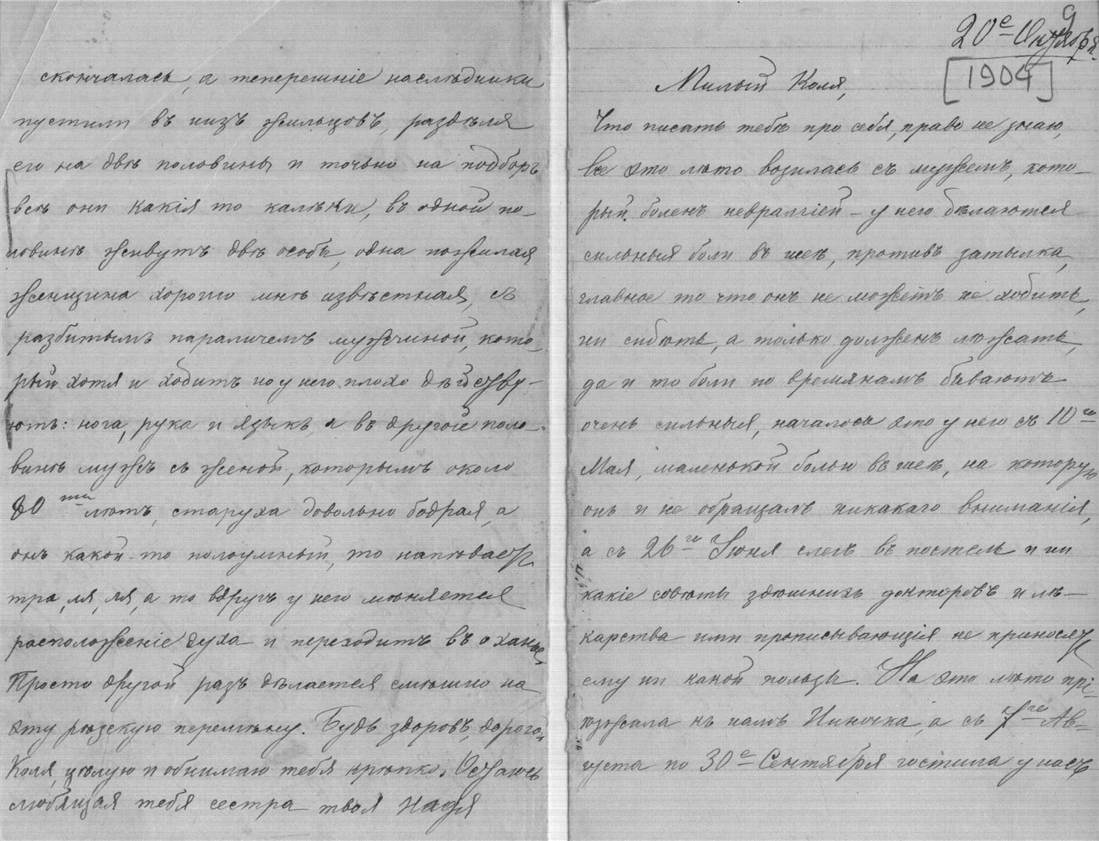 скончалась, а теперешніе наслѣдники
пустили въ низъ жильцовъ, раздѣля
его на двѣ половины и точьно на подборъ
всѣ они какія то калѣки, въ одной по-
ловинѣ живутъ двѣ особѣ, одна пожилая
женщина хорошо мнѣ извѣстная, съ
разбитымъ параличемъ мужчиной, кото-
рый хотя и ходитъ но у него плохо дѣйству-
ютъ: нога, рука и языкъ, а въ другой поло-
винѣ мужъ съ женой, которымъ около
80ти лѣтъ, старуха довольно бодрая, а
онъ какой-то полоумный, то напѣваетъ
тра, ля, ля, а то вдругъ у него мѣняется
расположеніе духа и переходитъ въ оханье,
просто другой разъ дѣлается смѣшно на
эту рѣзскую перемѣну. Будь здоровъ, дорогой
Коля, цѣлую и обнимаю тебя крѣпко. Остаюсь
любящая тебя сестра твоя Надя
9
20е Октября.
[1904]
Милый Коля,
Что писать тебѣ про себя, право не знаю,
все это лѣто возилась съ мужемъ, кото-
рый боленъ невралгіей – у него дѣлаются
сильныя боли въ шеѣ, противъ затылка,
главное то что онъ не можетъ не ходить,
ни сидѣть, а только долженъ лѣжать,
да и то боли по времянамъ бываютъ
очень сильныя, началось это у него съ 10го
Мая, маленькой болью въ шеѣ, на которую
онъ и не обращалъ никакаго вниманія,
а съ 26го Іюня слегъ въ постель и ни
какіе совѣты здѣшнихъ докторовъ и лѣ-
карства ими прописывающія не приносятъ
ему ни какой пользы. На это лѣто прі-
ѣзжала къ намъ Ниночка, а съ 7го Ав-
густа по 30е Сентября гостила у насъ